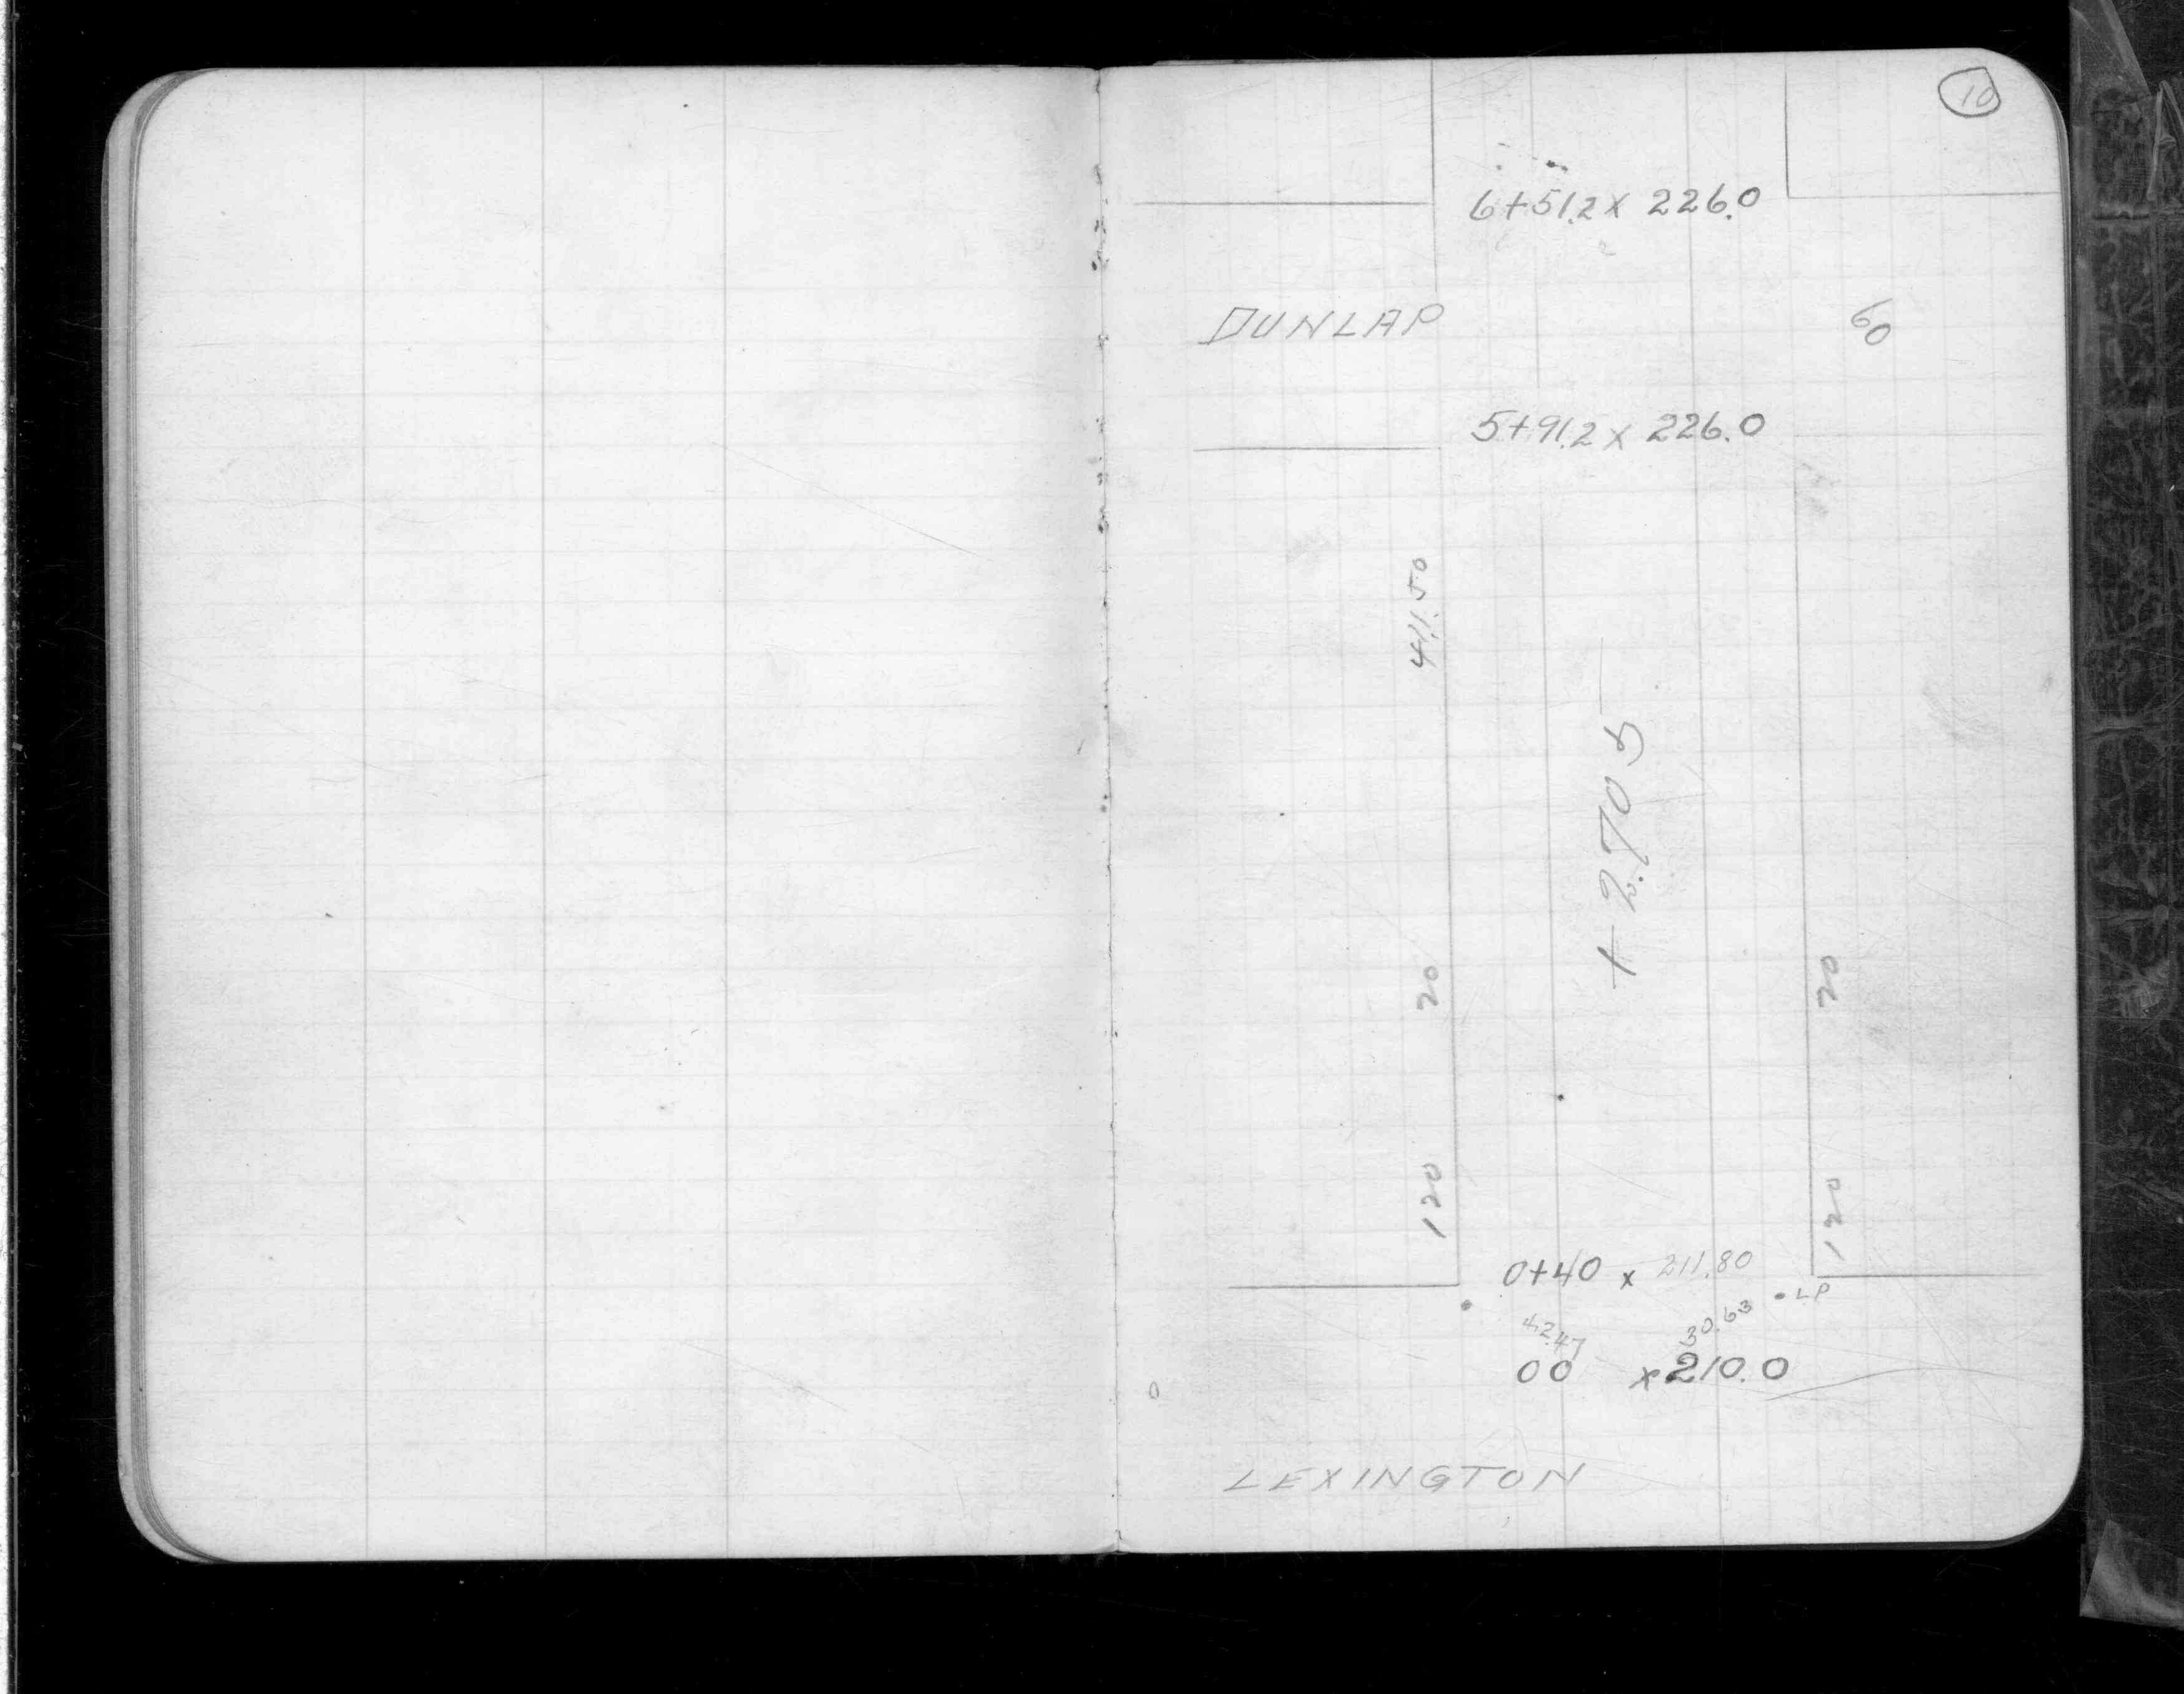 10
6+51.2 x 226.0
DUNLAP
60
5+91.2 x 226.0
411.50
+2.705
20
20
120
120
0+40 x 211.80
LP
42.47
30.63
00 x 210.0
LEXINGTON